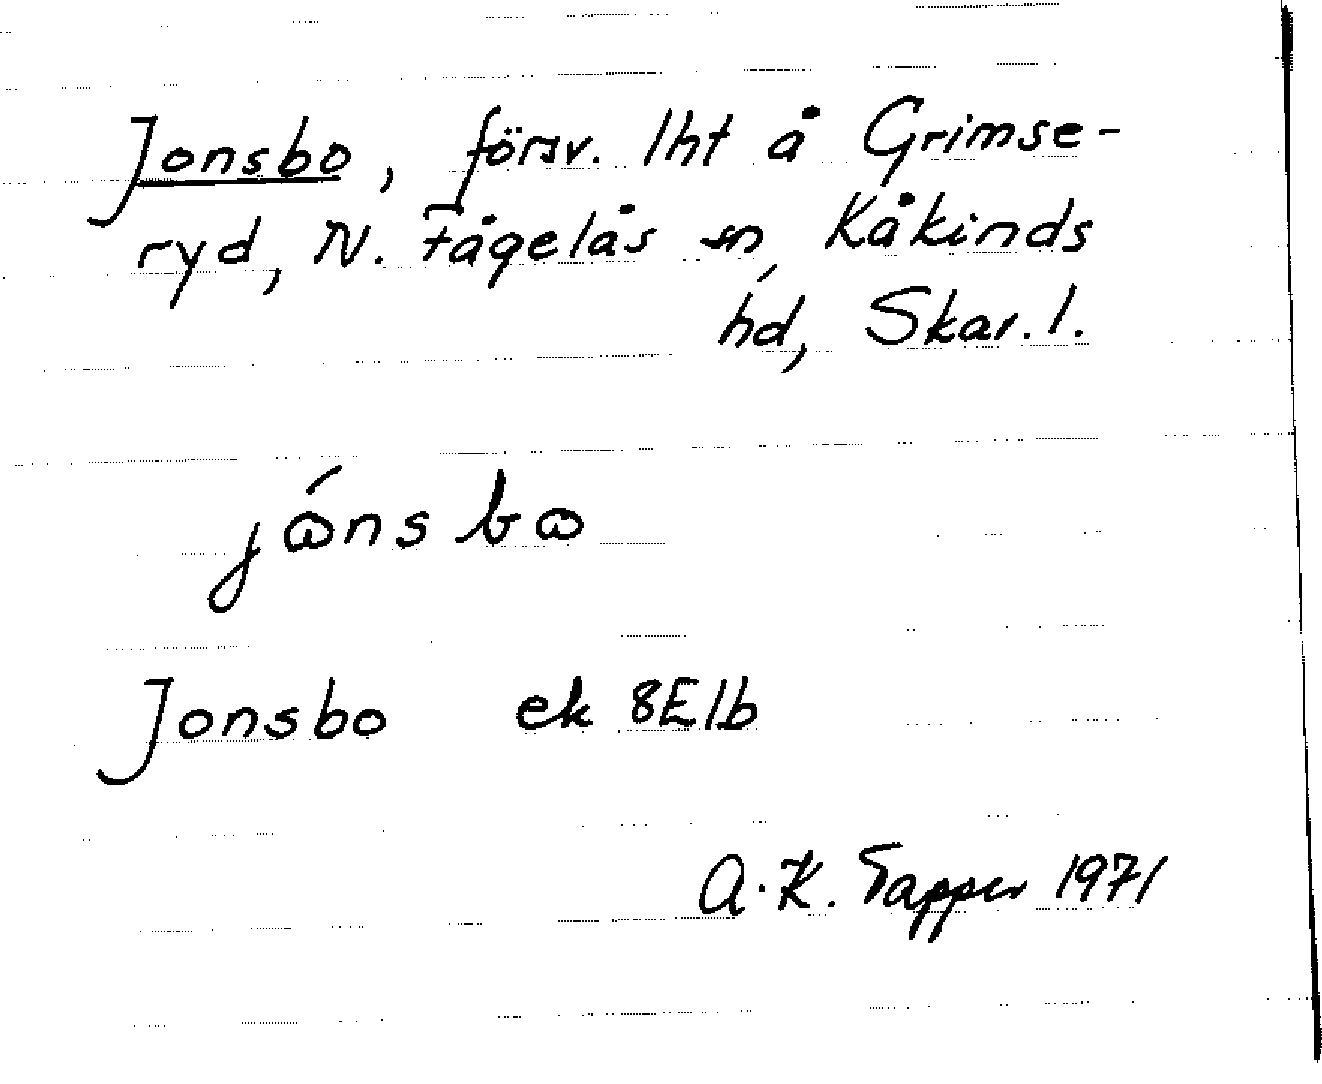 Jonsbo, försv. lht å Grimse-
ryd, N. Fågelås sn, Kåkinds
hd, Skar. l.
jónsbo
Jonsbo ek 8E1b
A.K. Tapper 1971